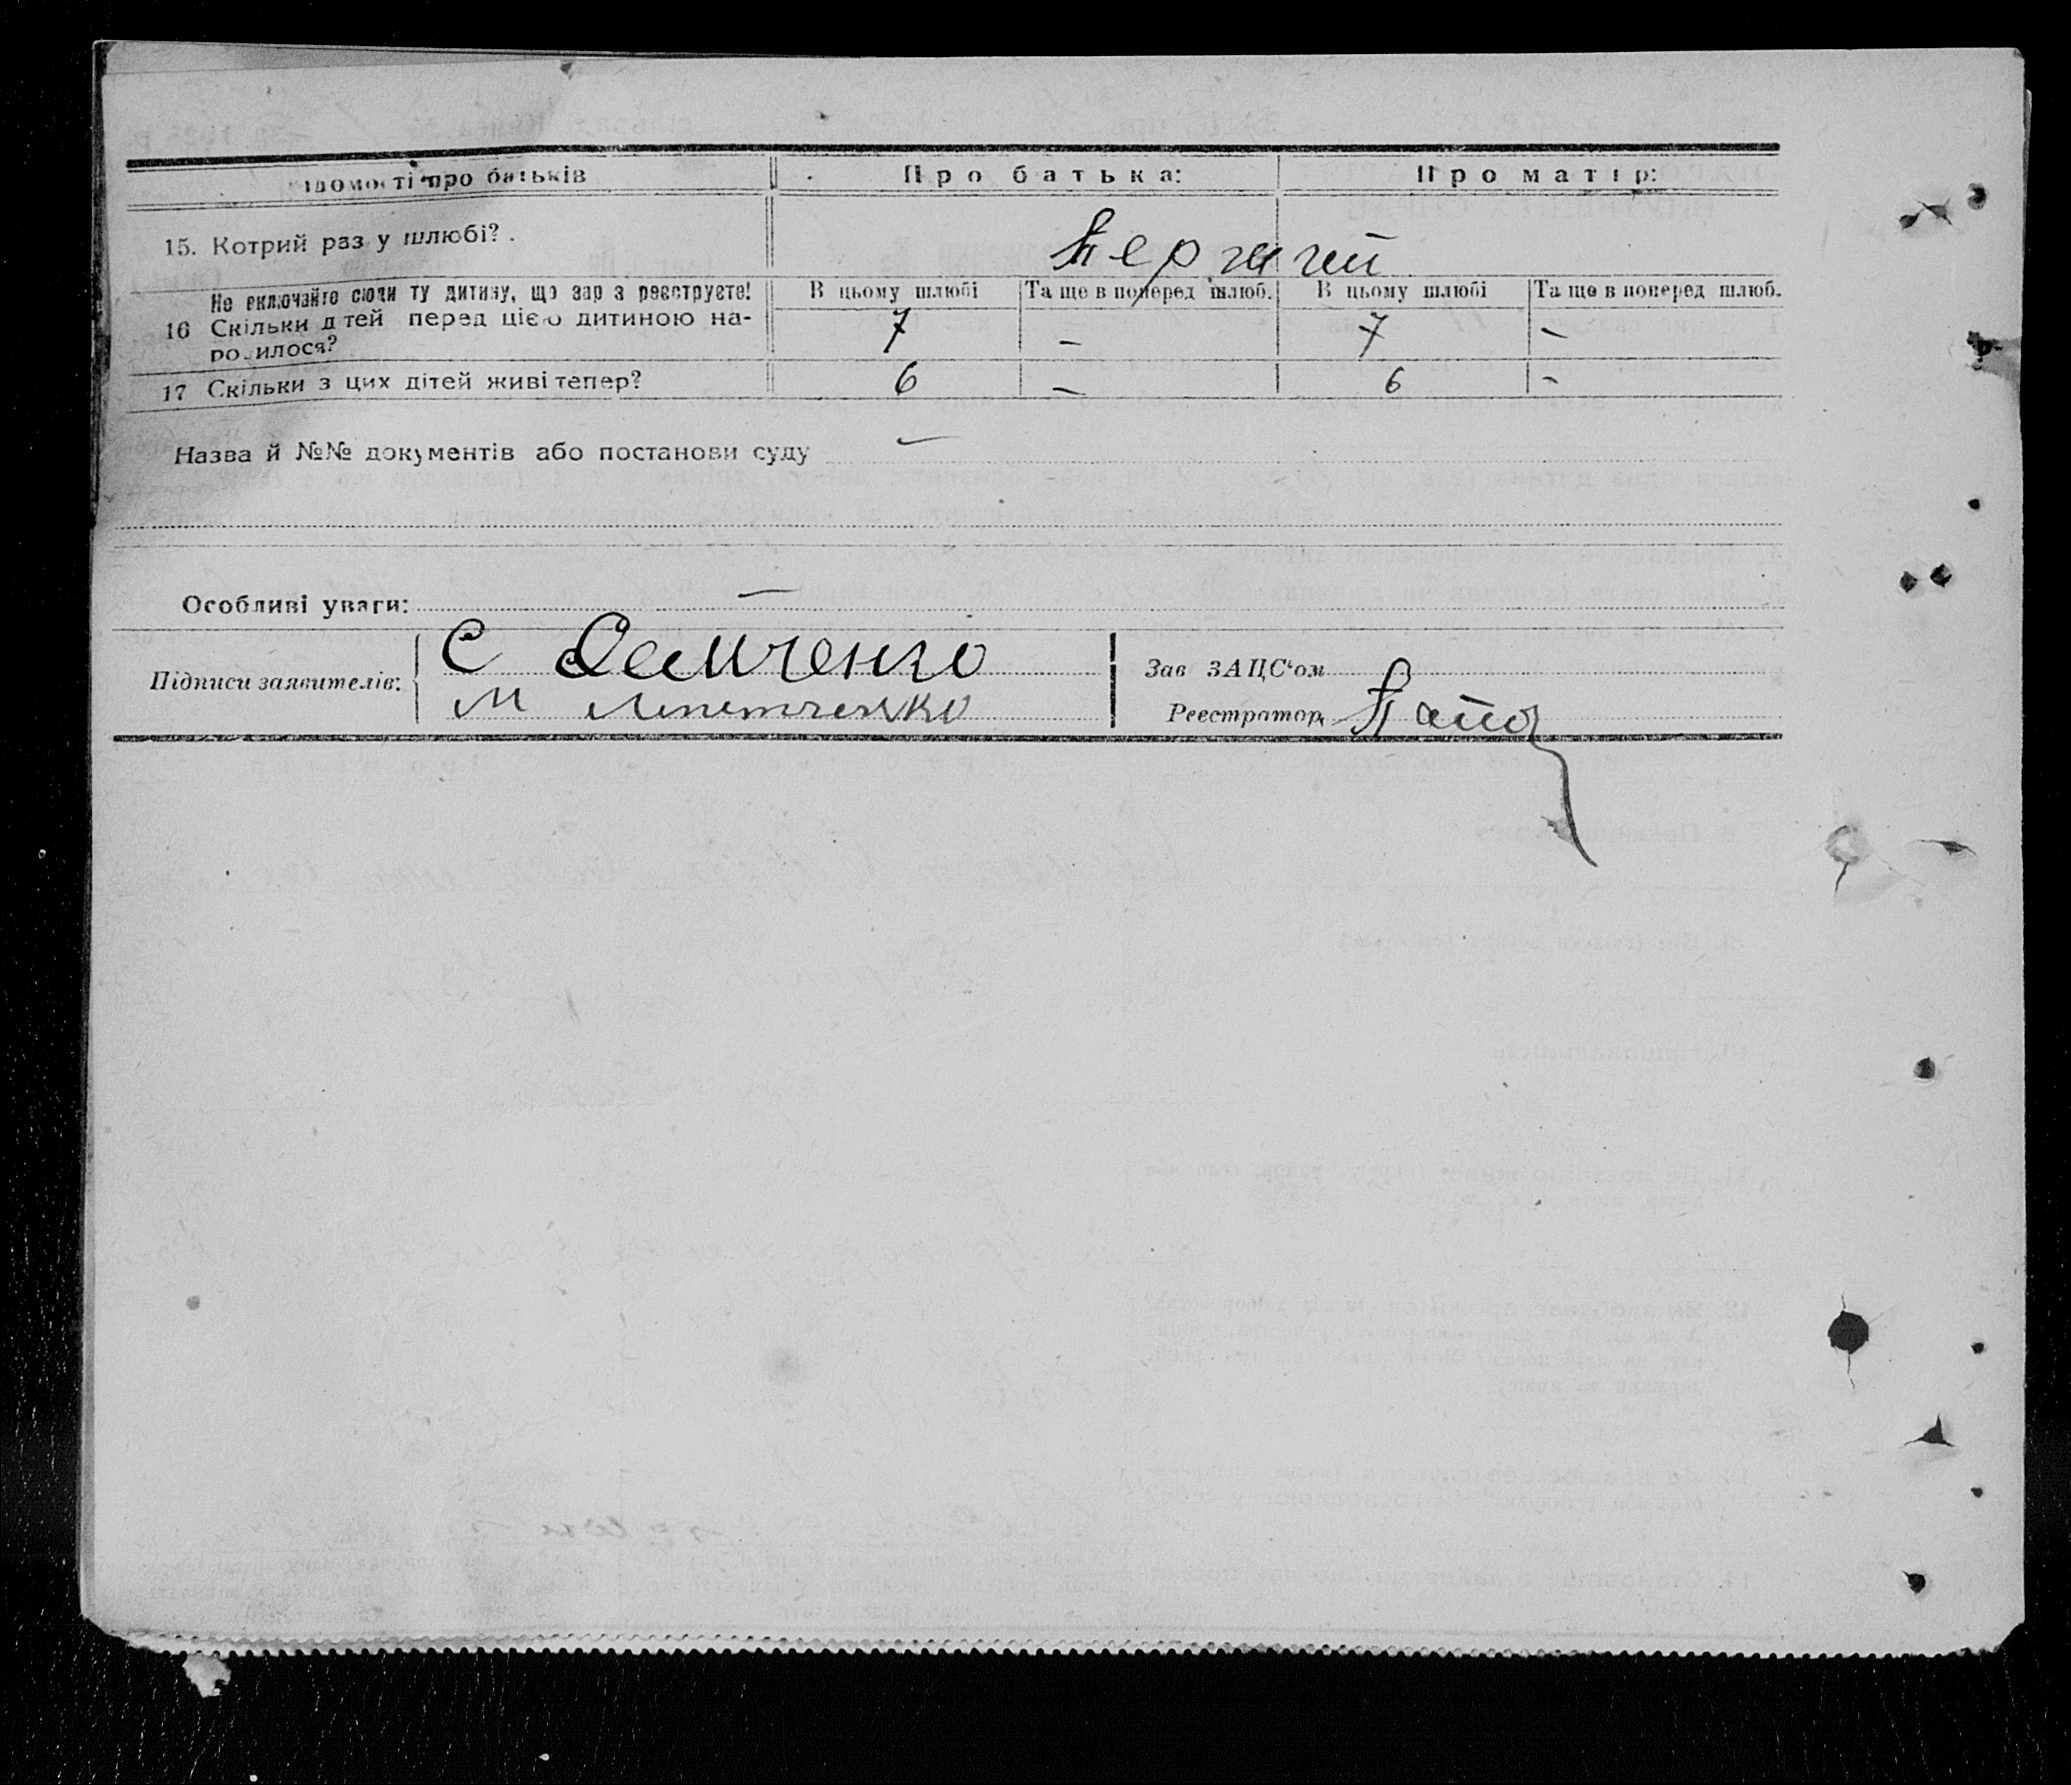 Відомості про батьків Про батька: Про матір:
15. Котрий раз у шлюбі?
Не включайте сюди ту дитину, що зараз реєструєте! В цьому шлюбі Та ще в поперед шлюб. В цьому шлюбі Та ще в поперед шлюб.
16 Скільки дітей перед цією дитиною на- 7 – 7 –
родилося?
17 Скільки з цих дітей живі тепер? 6 – 6 –
Назва й №№ документів або постанови суду –
Особливі уваги: –
Підписи заявителів: С
М
Зав ЗАЦС'ом
Реєстратор